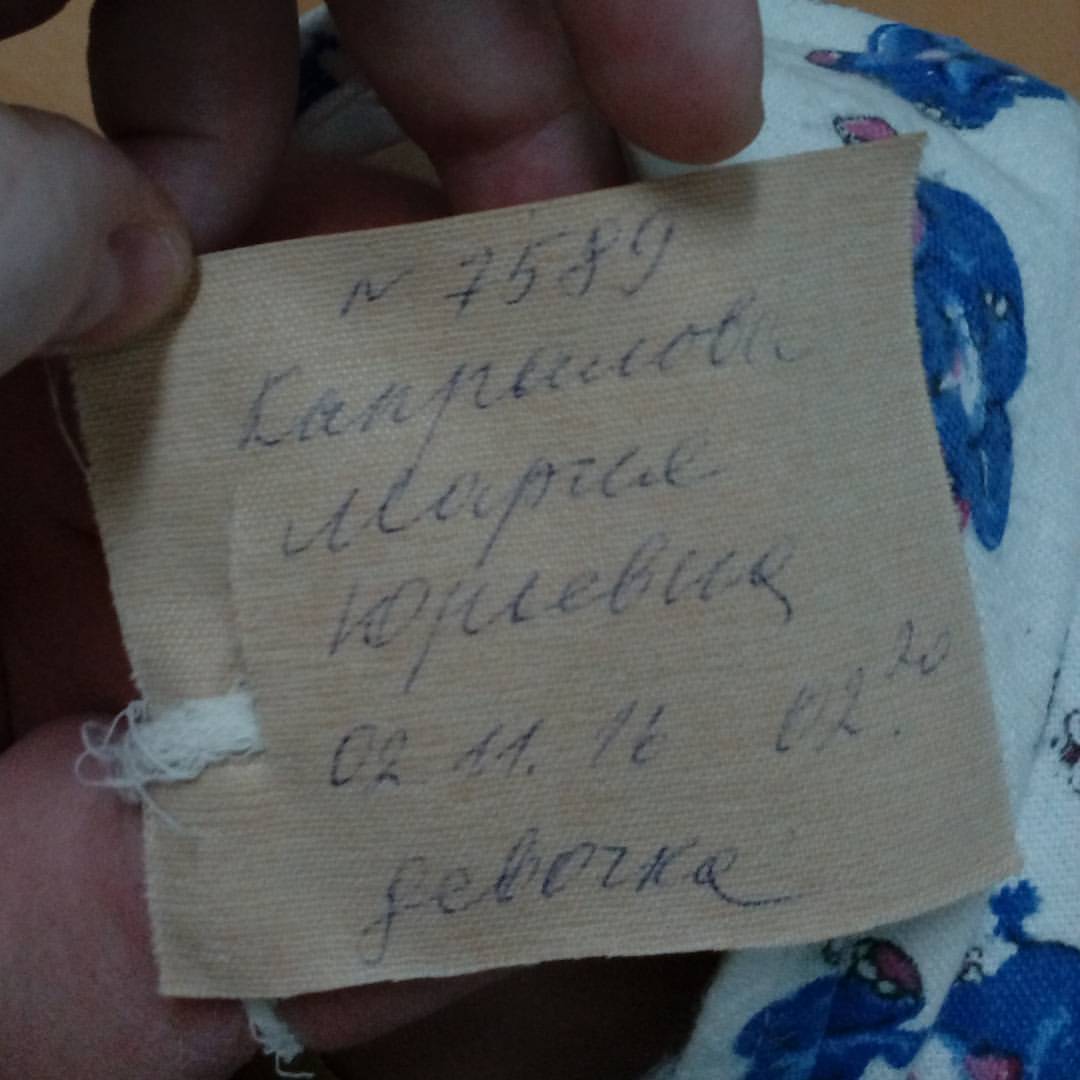 N 7589
Капрылова
Мария
Юрьевна
02 11. 16 02.20
девочка